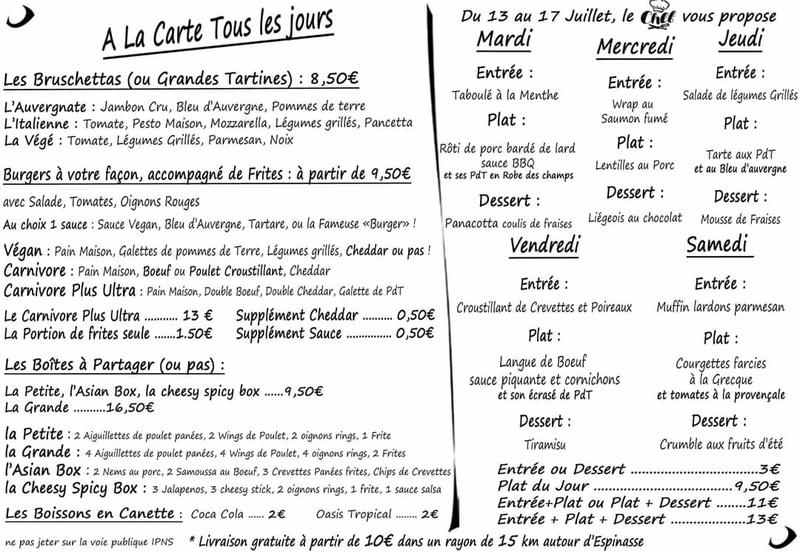 A La Carte Tous les jours
Les Bruschettas (ou Grandes Tartines) : 8,50€
L'Auvergnate : Jambon Cru, Bleu d'Auvergne, Pommes de terre
L'Italienne : Tomate, Pesto Maison, Mozzarella, Légumes grillés, Pancetta
La Végé : Tomate, Légumes Grillés, Parmesan, Noix
Burgers à votre façon, accompagné de Frites : à partir de 9,50€
avec Salade, Tomates, Oignons Rouges
Au choix 1 sauce : Sauce Vegan, Bleu d'Auvergne, Tartare, ou la Fameuse «Burger» !
Végan : Pain Maison, Galettes de pommes de Terre, Légumes grillés, Cheddar ou pas !
Carnivore : Pain Maison, Boeuf ou Poulet Croustillant, Cheddar
Carnivore Plus Ultra : Pain Maison, Double Boeuf, Double Cheddar, Galette de PdT
Le Carnivore Plus Ultra ........... 13 € Supplément Cheddar .......... 0,50€
La Portion de frites seule .......1.50€ Supplément Sauce ............... 0,50€
Les Boîtes à Partager (ou pas) :
La Petite, l'Asian Box, la cheesy spicy box ......9,50€
La Grande ..........16,50€
la Petite : 2 Aiguillettes de poulet panées, 2 Wings de Poulet, 2 oignons rings, 1 Frite
la Grande : 4 Aiguillettes de poulet panées, 4 Wings de Poulet, 4 oignons rings, 2 Frites
l'Asian Box : 2 Nems au porc, 2 Samoussa au Boeuf, 3 Crevettes Panées frites, Chips de Crevettes
la Cheesy Spicy Box : 3 Jalapenos, 3 cheesy stick, 2 oignons rings, 1 frite, 1 sauce salsa
Les Boissons en Canette : Coca Cola ...... 2€ Oasis Tropical ........ 2€
ne pas jeter sur la voie publique IPNS
Du 13 au 17 Juillet, le Chef vous propose
Mardi
Entrée :
Taboulé à la Menthe
Plat :
Rôti de porc bardé de lard
sauce BBQ
et ses PdT en Robe des champs
Dessert :
Panacotta coulis de fraises
Mercredi
Entrée :
Wrap au
Saumon fumé
Plat :
Lentilles au Porc
Dessert :
Liégeois au chocolat
Jeudi
Entrée :
Salade de légumes Grillés
Plat :
Tarte aux PdT
et au Bleu d'auvergne
Dessert :
Mousse de Fraises
Vendredi
Entrée :
Croustillant de Crevettes et Poireaux
Plat :
Langue de Boeuf
sauce piquante et cornichons
et son écrasé de PdT
Dessert :
Tiramisu
Samedi
Entrée :
Muffin lardons parmesan
Plat :
Courgettes farcies
à la Grecque
et tomates à la provençale
Dessert :
Crumble aux fruits d'été
Entrée ou Dessert ........................3€
Plat du Jour ............................9,50€
Entrée+Plat ou Plat + Dessert .......11€
Entrée + Plat + Dessert................13€
* Livraison gratuite à partir de 10€ dans un rayon de 15 km autour d'Espinasse